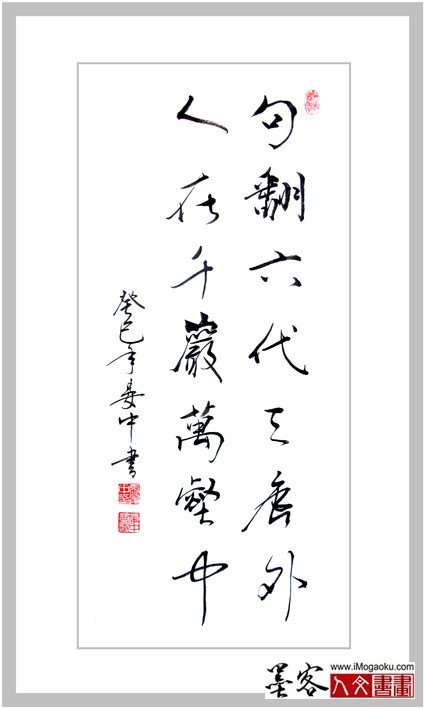 句翻六代三唐外
人在千巖萬壑中
癸巳年晏中書
墨客
www.iMogaoku.com
人文書畫